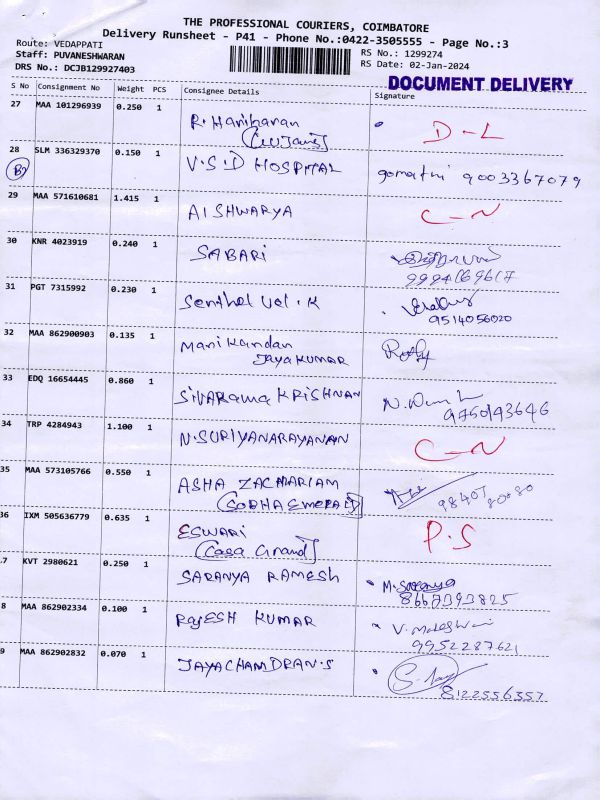 THE PROFESSIONAL COURIERS, COIMBATORE
Delivery Runsheet - P41 - Phone No.:0422-3505555 - Page No.:3
Route: VEDAPPATI
Staff: PUVANESHWARAN
DRS No.: DCJB129927403
RS No.: 1299274
RS Date: 02-Jan-2024
DOCUMENT DELIVERY
S No Consignment No Weight PCS Consignee Details Signature
27 MAA 101296939 0.250 1 R. Hariharan D-L
28 SLM 336329370 0.150 1 V.S.D HOSPITAL 9003367079
29 MAA 571610681 1.415 1 AISHWARYA C-N
30 KNR 4023919 0.240 1 SABARI
31 PGT 7315992 0.230 1 Senthel Vel.K 9514056020
32 MAA 862900903 0.135 1 Manikandan
JAYAKUMAR
33 EDQ 16654445 0.860 1 SIVARama KRISHNAN
34 TRP 4284943 1.100 1 N.SURIYANARAYANAN C-N
35 MAA 573105766 0.550 1 ASHA ZACHARIAM 98407
(SOBHA EMERALD) 80080
36 IXM 505636779 0.635 1 ESWARI P.S
(Casa Grand)
7 KVT 2980621 0.250 1 SARANYA RAMESH M.Saranya
8667393825
8 MAA 862902334 0.100 1 RAJESH KUMAR
9952287621
9 MAA 862902832 0.070 1 JAYACHANDRAN.S
8122556357